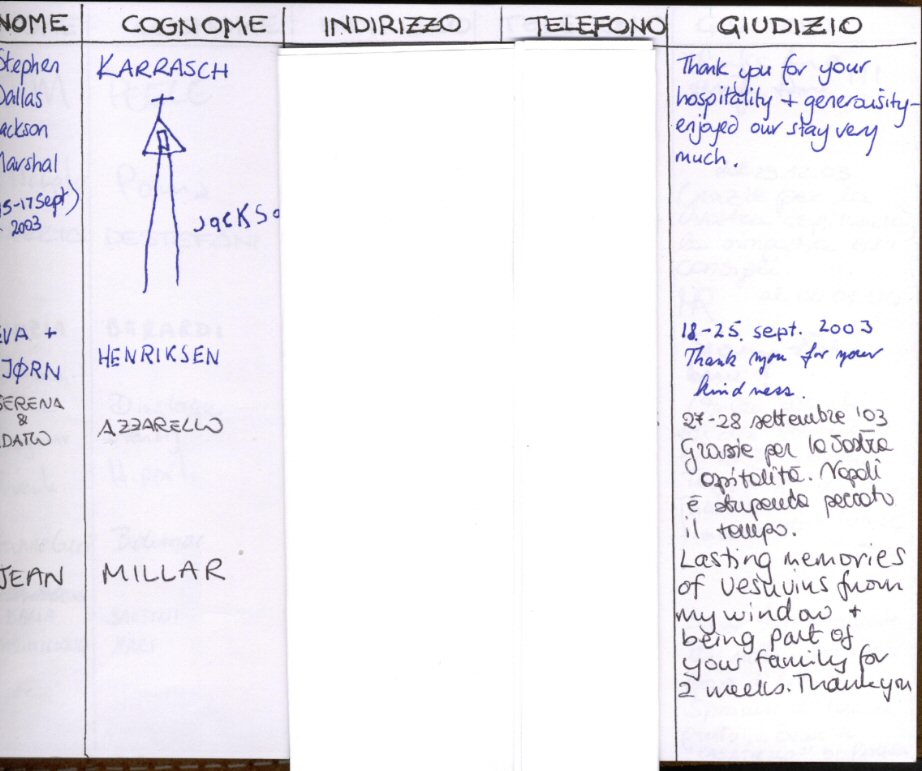 NOME COGNOME INDIRIZZO TELEFONO GIUDIZIO
Stephen KARRASCH Thank you for your
Dallas hospitality + generousity-
Jackson enjoyed our stay very
Marshal much.
15-17 Sept)
2003
JACKSO
EVA + 18.-25. sept. 2003
JØRN HENRIKSEN Thank you for your
kindness.
SERENA
&
DARIO AZZARELLO 27-28 settembre '03
Grazie per la vostra
opitalità. Napoli
è stupenda peccato
il tempo.
JEAN MILLAR Lasting memories
of Vesuvius from
my window +
being part of
your family for
2 weeks. Thank you